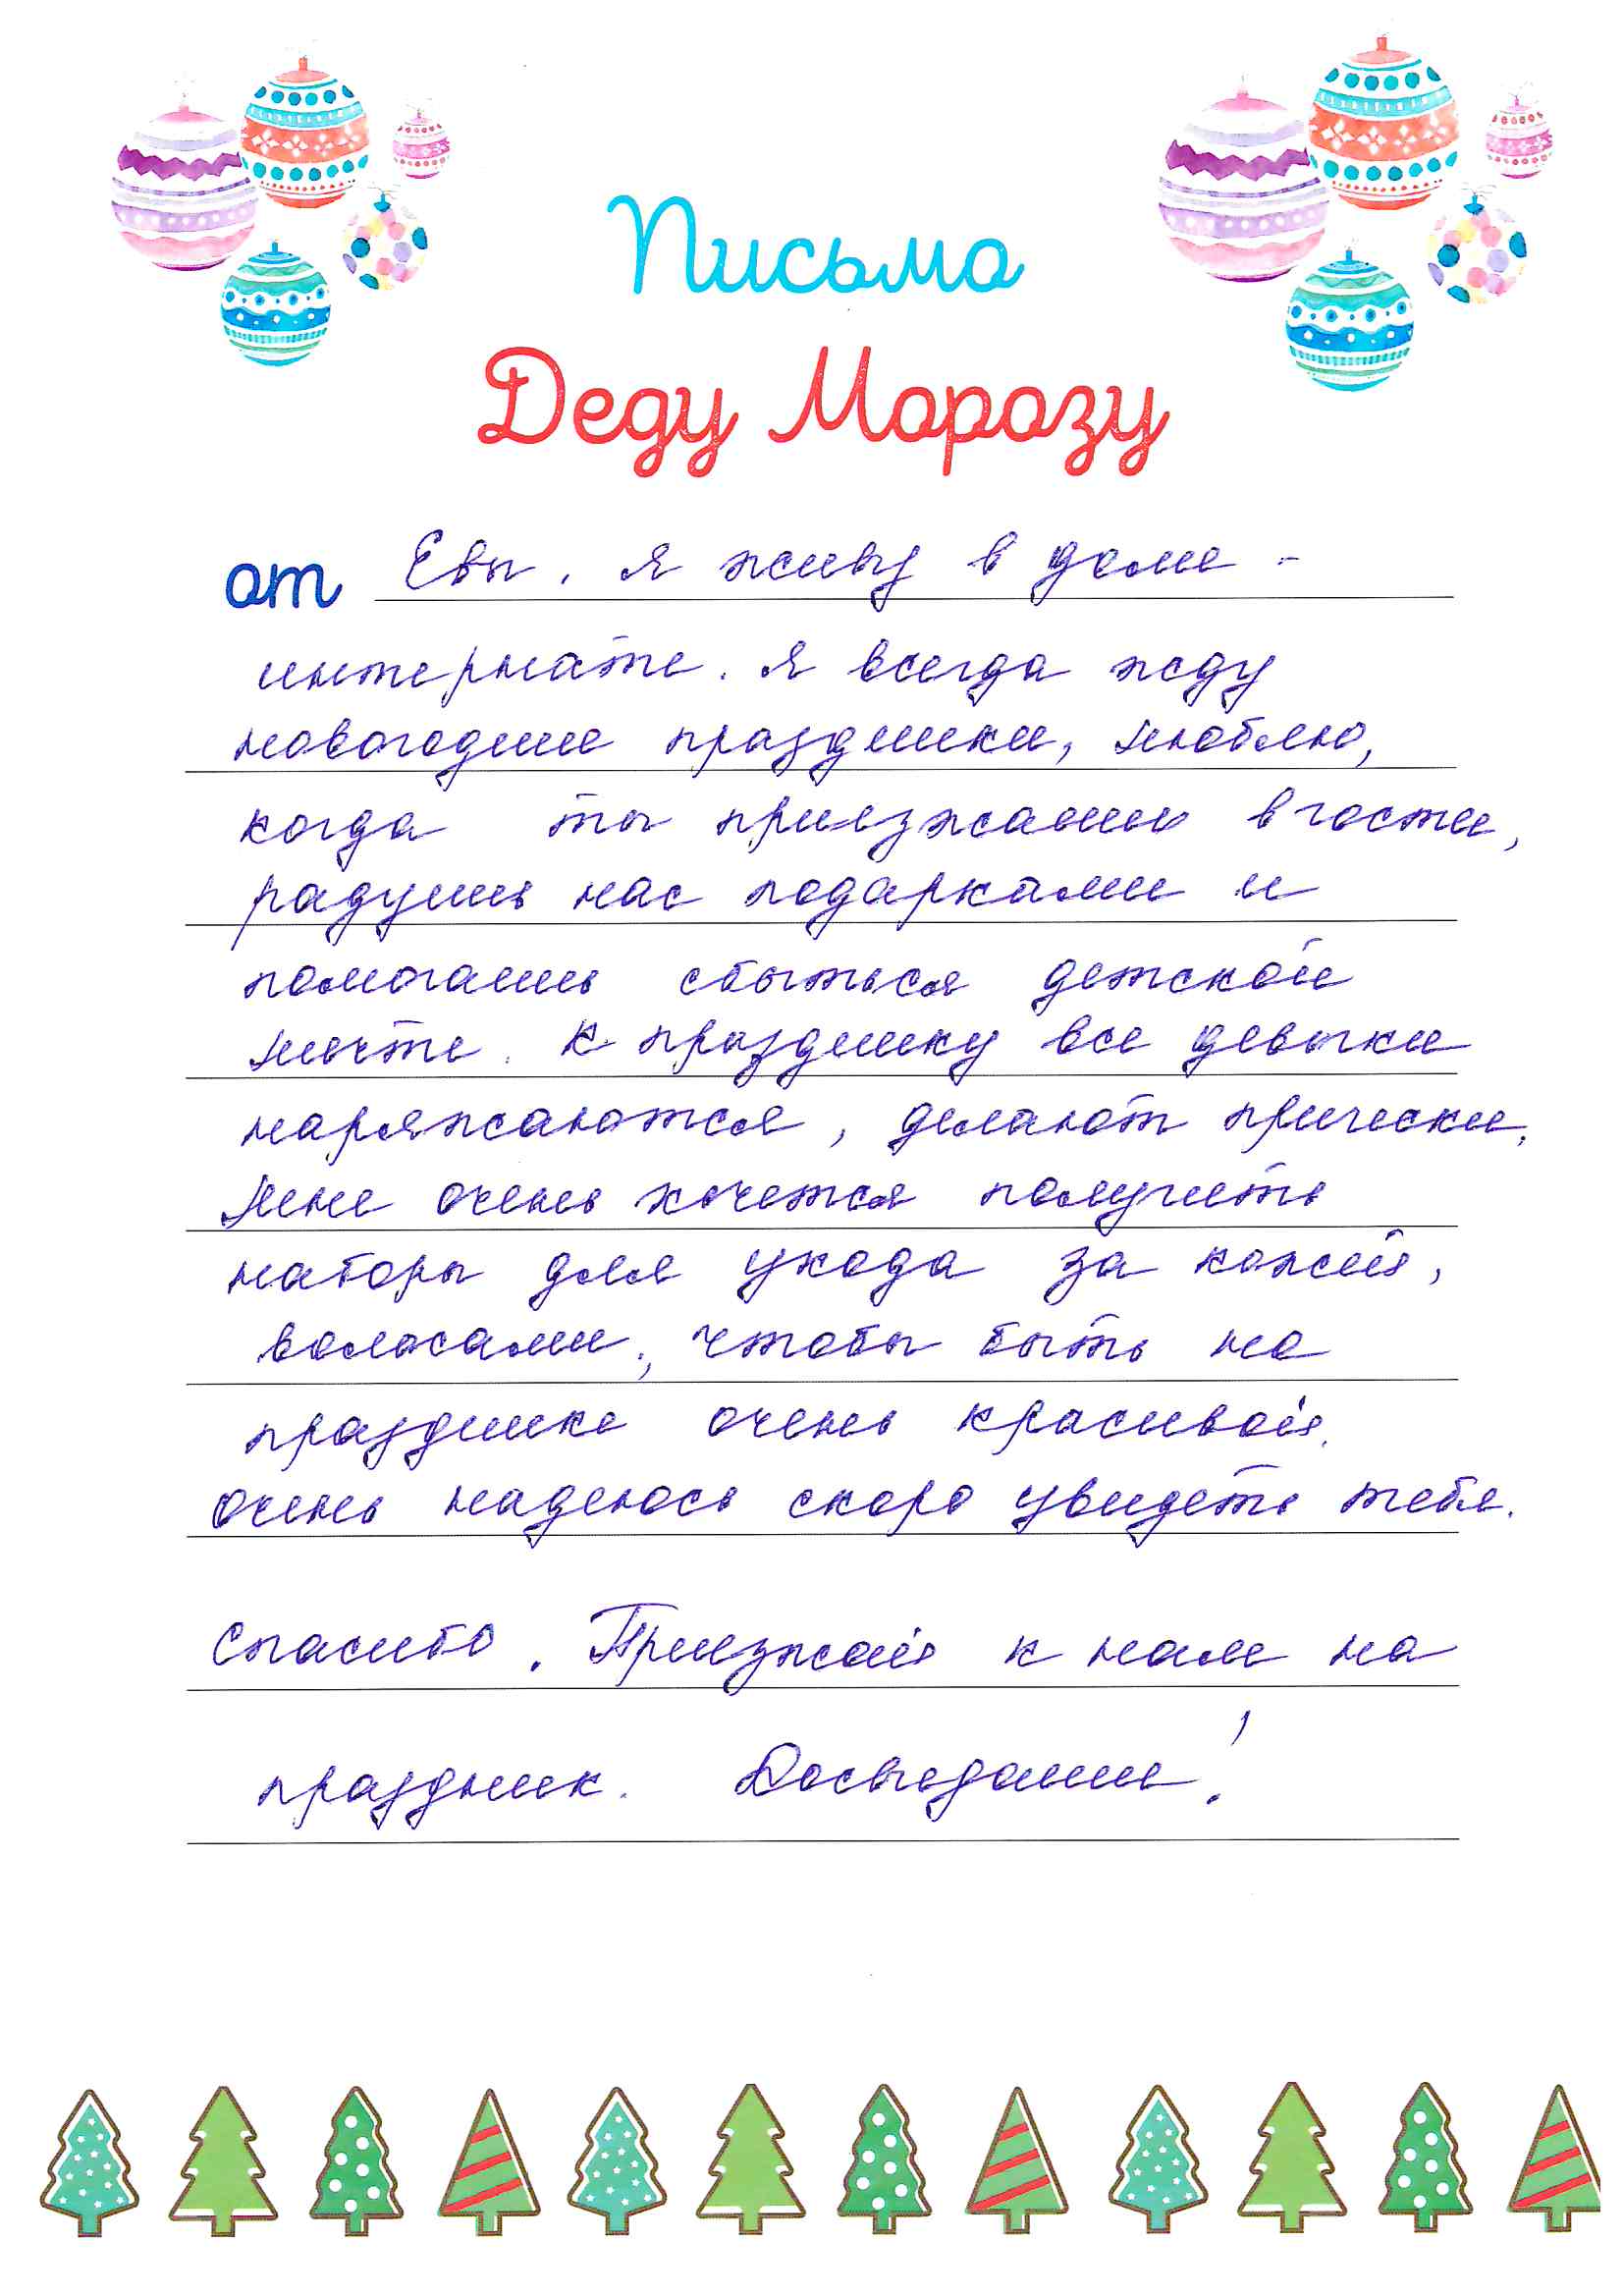 Письмо
Деду Морозу
от Евы. Я живу в доме-
интернате. Я всегда жду
новогодние праздники, люблю,
когда ты приезжаешь в гости,
радуешь нас подарками и
помогаешь сбыться детской
мечте. К празднику все девочки
наряжаются, делают прически.
Мне очень хочется получить
наборы для ухода за кожей,
волосами, чтобы быть на
празднике очень красивой.
Очень надеюсь скоро увидеть тебя.
Спасибо. Приезжай к нам на
праздник. Досвидание!